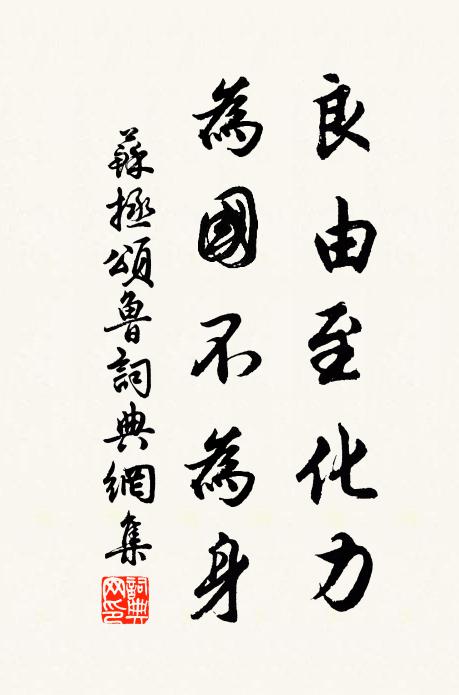 良由至化力
為國不為身
蘇拯頌魯詞典網集
詞典網印